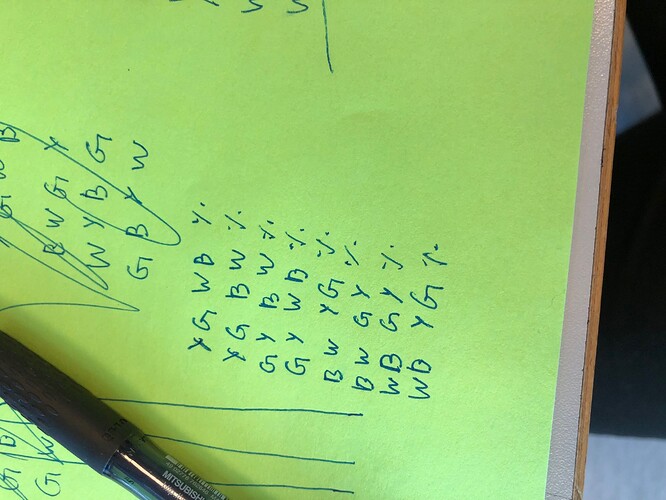 B W G Y
W Y B G
G B Y W
Y G W B ·/.
Y G B W ·/.
G Y B W ·/.
G Y W B ·/.
B W Y G ·/.
B W G Y ·/.
W B G Y ·/.
W B Y G ·/.
MITSUBISHI